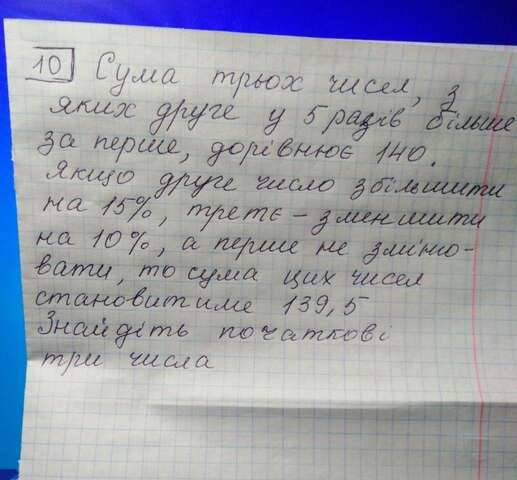 10 Сума трьох чисел, з
яких друге у 5 разів більше
за перше, дорівнює 140.
Якщо друге число збільшити
на 15%, третє - зменшити
на 10%, а перше не зміню-
вати, то сума цих чисел
становитиме 139,5
Знайдіть початкові
три числа